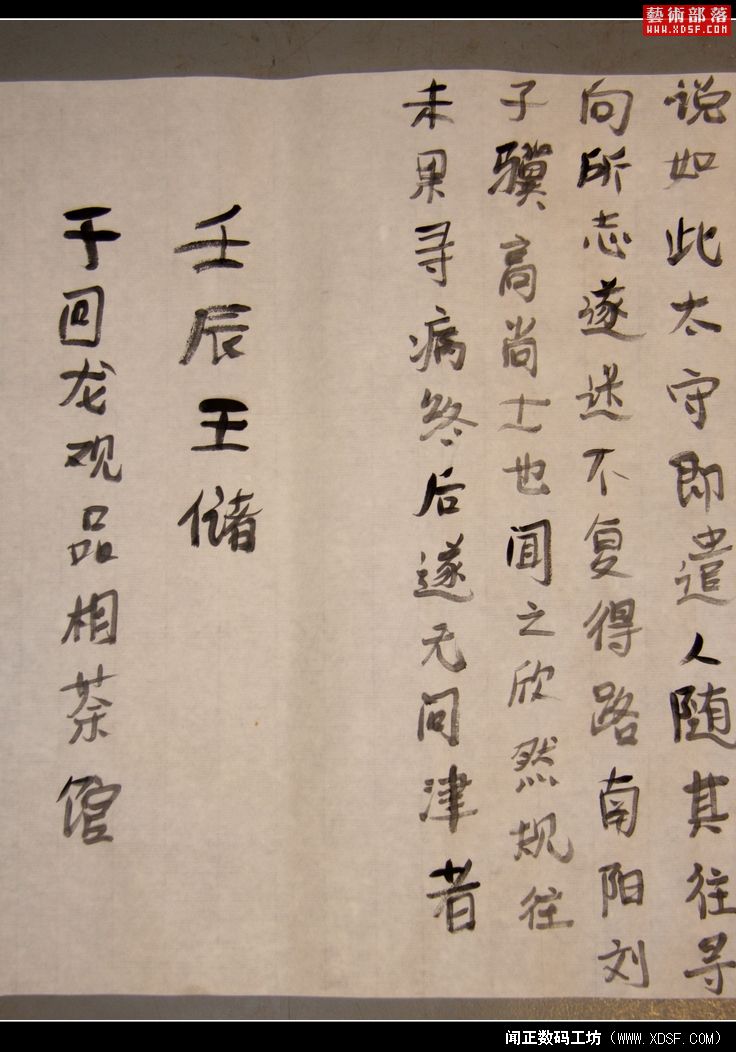 藝術部落
WWW.XDSF.COM
说如此太守即遣人随其往寻
向所志遂迷不复得路南阳刘
子骥高尚士也闻之欣然规往
未果寻病终后遂无问津者
壬辰王储
于回龙观品相茶馆
闻正数码工坊（WWW.XDSF.COM）